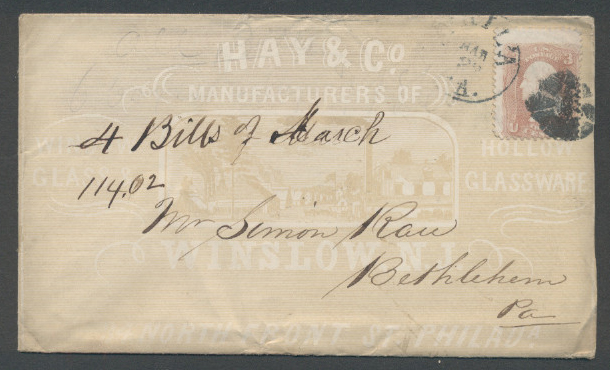 HAY & Co
MANUFACTURERS OF
4 Bills of March
114.02
HOLLOW
GLASSWARE
Mr Simon Rau
WINSLOW N.J.
Bethlehem
Pa
NORTH FRONT ST. PHILADA
3
U